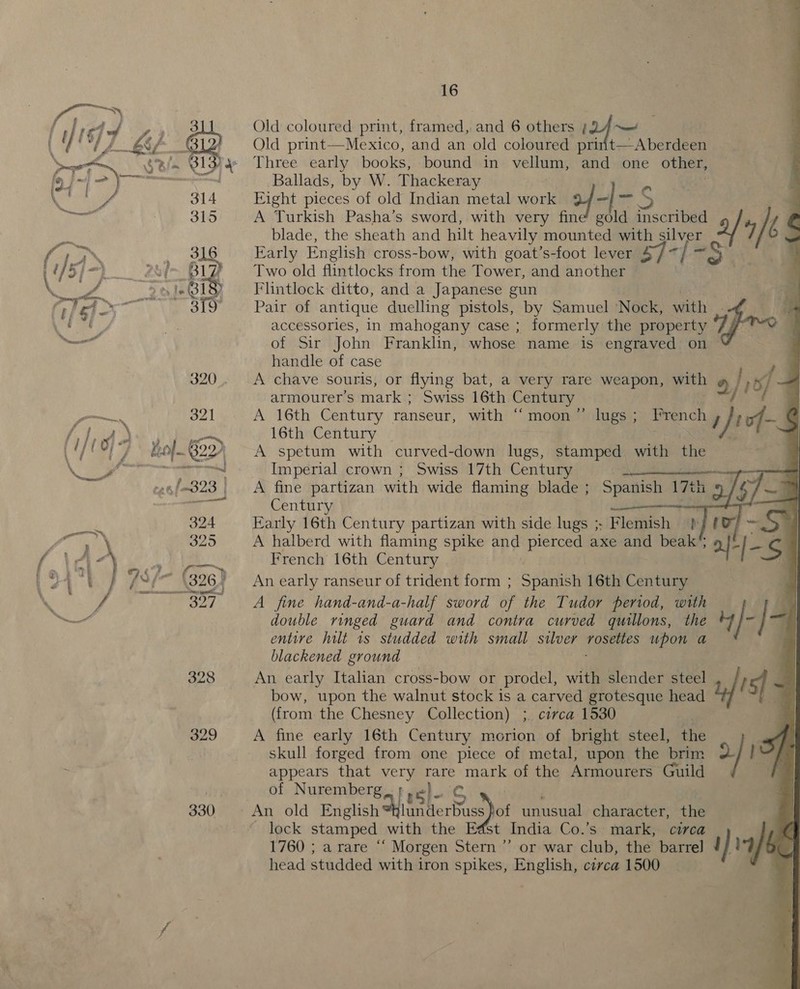 16
311 Old coloured print, framed, and 6 others
312 Old print—Mexico, and an old coloured print—Aberdeen
313 Three early books, bound in vellum, and one other,
Ballads, by W. Thackeray
314 Eight pieces of old Indian metal work
315 A Turkish Pasha's sword, with very fine gold inscribed
blade, the sheath and hilt heavily mounted with silver
316 Early English cross-bow, with goat's-foot lever
317 Two old flintlocks from the Tower, and another
318 Flintlock ditto, and a Japanese gun
319 Pair of antique duelling pistols, by Samuel Nock, with
accessories, in mahogany case ; formerly the property
of Sir John Franklin, whose name is engraved on
handle of case
320 A chave souris, or flying bat, a very rare weapon, with
armourer's mark ; Swiss 16th Century
321 A 16th Century ranseur, with “moon” lugs ; French
16th Century
322 A spetum with curved-down lugs, stamped with the
Imperial crown ; Swiss 17th Century
323 A fine partizan with wide flaming blade ; Spanish 17th
Century
324 Early 16th Century partizan with side lugs ; Flemish
325 A halberd with flaming spike and pierced axe and beak ;
French 16th Century
326 An early ranseur of trident form ; Spanish 16th Century
327 A fine hand-and-a-half sword of the Tudor period, with
double ringed guard and contra curved quillons, the
entire hilt is studded with small silver rosettes upon a
blackened ground
328 An early Italian cross-bow or prodel, with slender steel
bow, upon the walnut stock is a carved grotesque head
(from the Chesney Collection) ; circa 1530
329 A fine early 16th Century morion of bright steel, the
skull forged from one piece of metal, upon the brim
appears that very rare mark of the Armourers Guild
of Nuremberg
330 An old English blunderbuss of unusual character, the
lock stamped with the East India Co.'s mark, circa
1760 ; a rare “ Morgen Stern ” or war club, the barrel
head studded with iron spikes, English, circa 1500